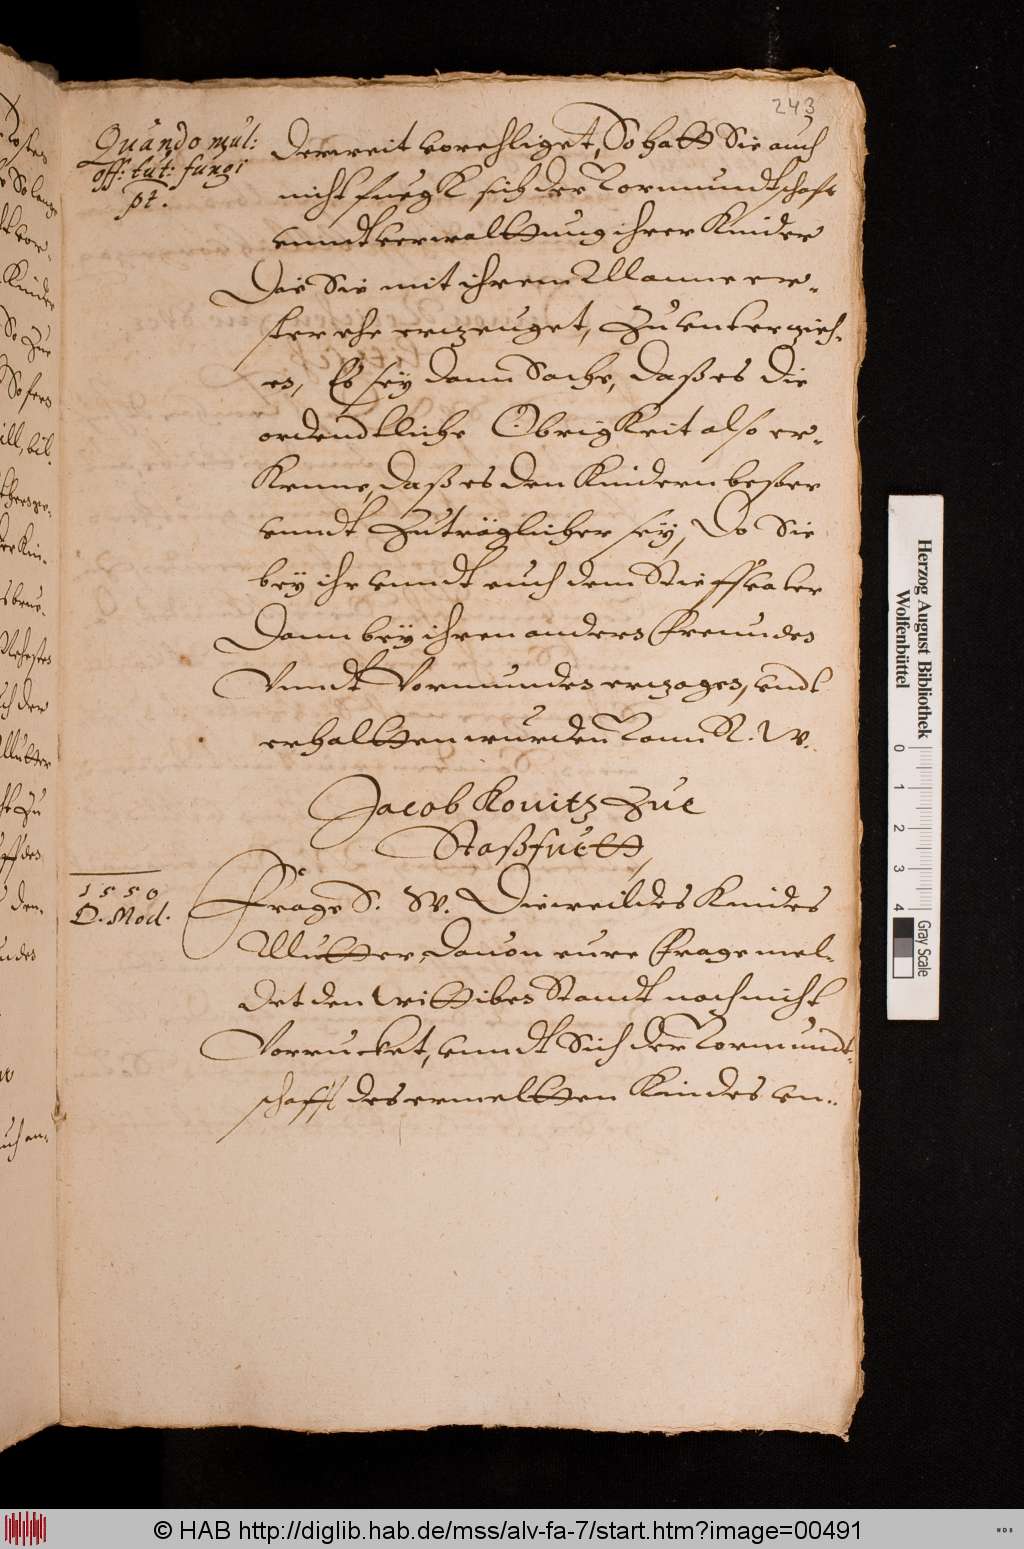 243
Quando mul:
off: tut: fungi
pt.
derweit verehliget, So hatt Sie auch
nicht fuegk sich der Vormundtschafft
unndt verwalttung ihrer Kinder
Die Sie mit ihrem Manne er-
ster ehe erzeuget, Zu unterzieh-
en, Es sey dann Sache, daß es die
ordendtliche Obrigkeit also er-
kenne, daß es den Kindern beßer
unndt Zuträglicher sey, Do Sie
bey ihr unndt auch dem Stieffvater
Dann bey ihren anders Freunden
Vnndt Vormunden erzogen, undt
erhaltten wurden V. R. W.
Jacob Konitz Zue
Staßfurtt,
1550
D. Mod.
Frage S. W. Dieweil des Kindes
Mutter, davon eure Frage mel-
det den Wittiben Standt noch nicht
Vorrucket, unndt Sich der Vormundt-
schafft des ermeltten Kindes un-
Herzog August Bibliothek
Wolfenbüttel
0 1 2 3 4
Gray Scale
© HAB http://diglib.hab.de/mss/alv-fa-7/start.htm?image=00491